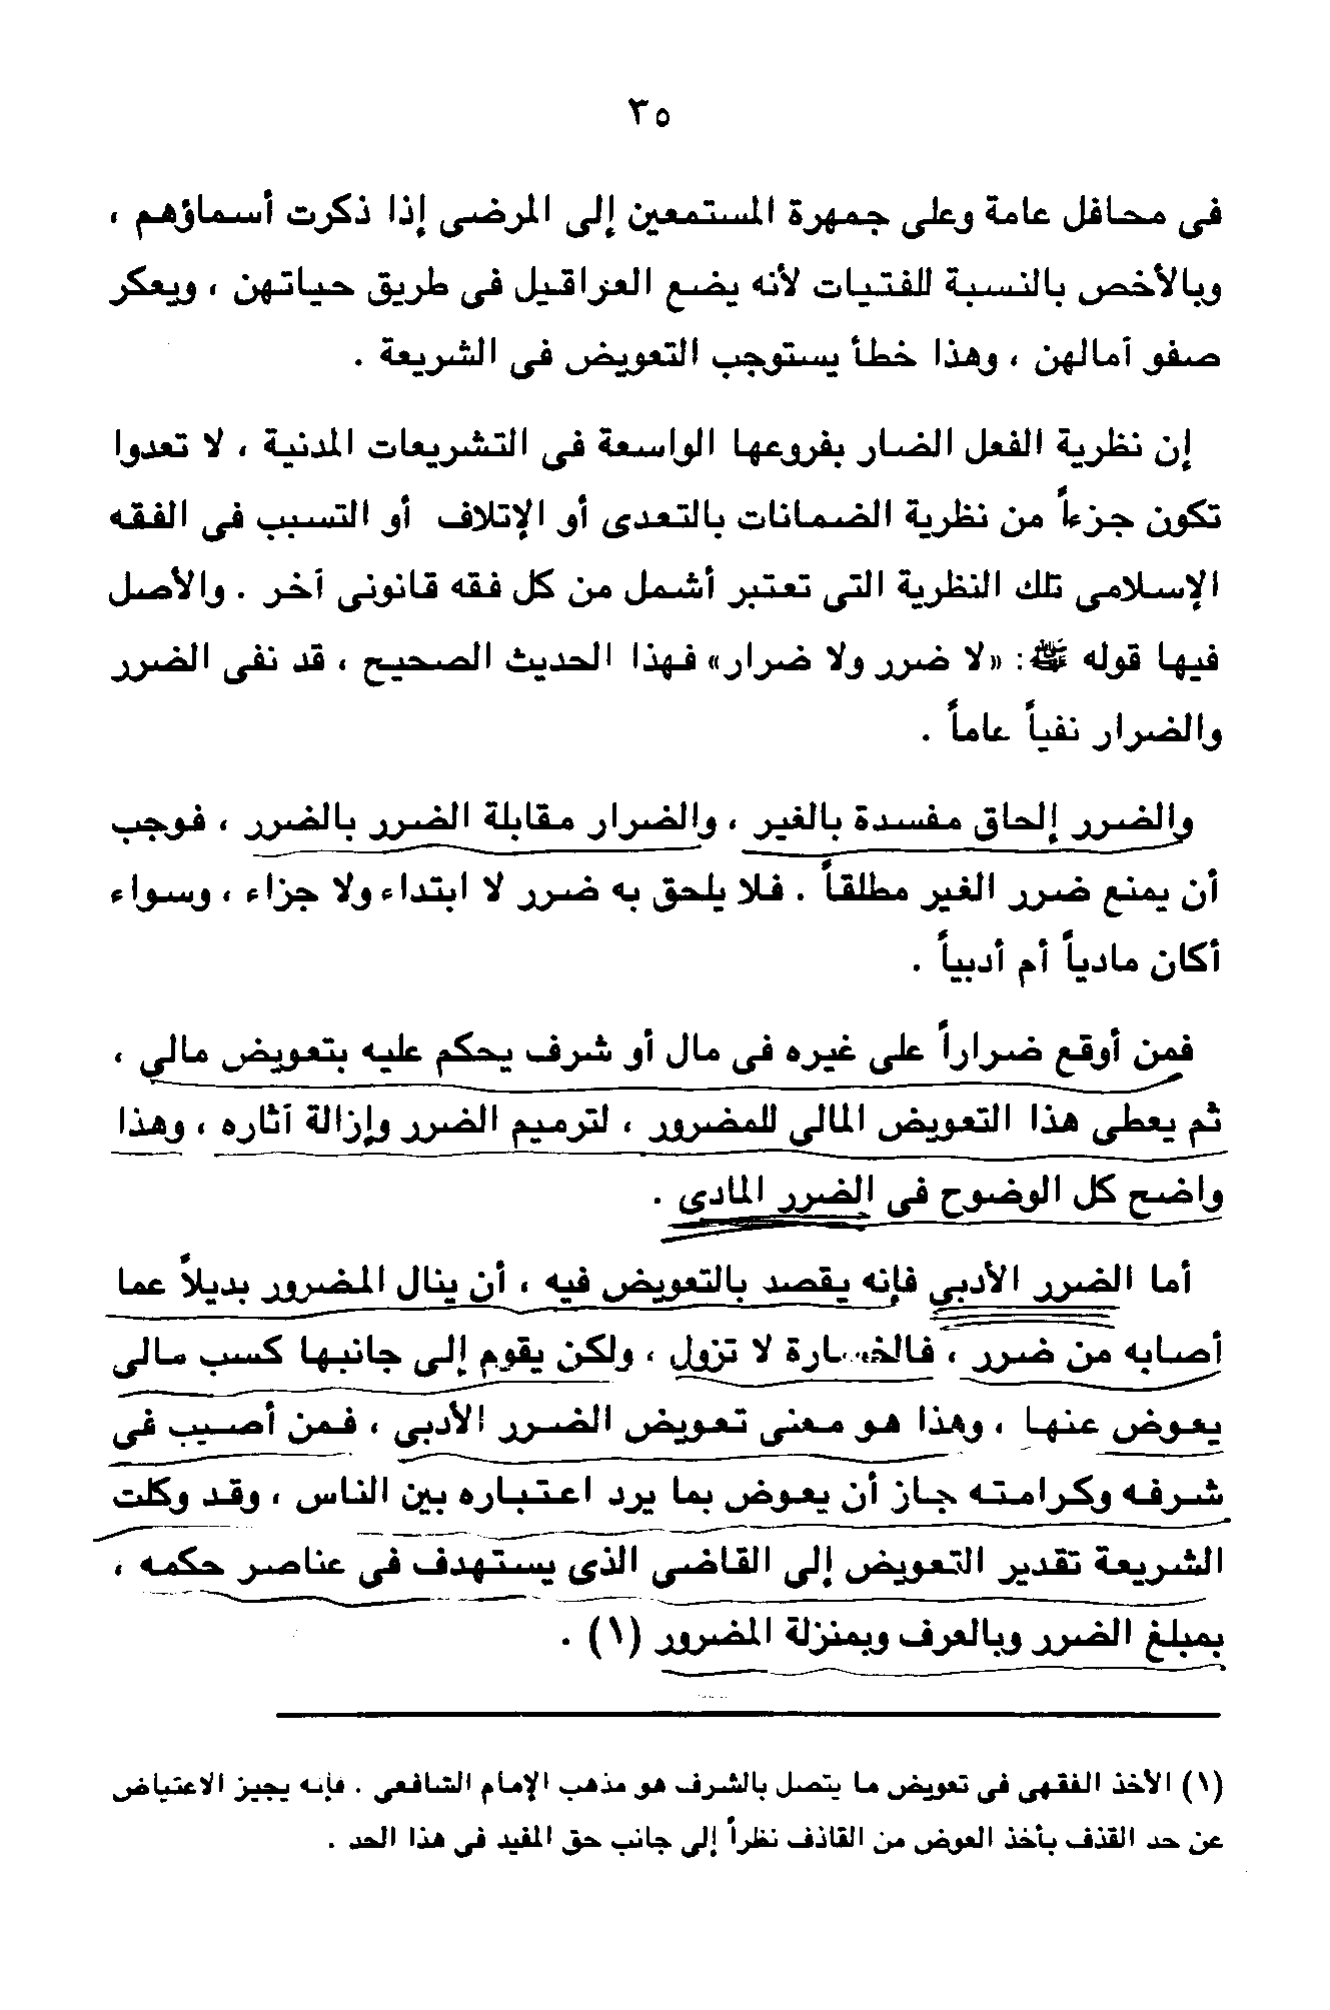 ٣٥
فى محافل عامة وعلى جمهرة المستمعين إلى المرضى إذا ذكرت أسماؤهم ،
وبالأخص بالنسبة للفتيات لأنه يضع العراقيل فى طريق حياتهن ، ويعكر
صفو آمالهن ، وهذا خطأ يستوجب التعويض فى الشريعة .
إن نظرية الفعل الضار بفروعها الواسعة فى التشريعات المدنية ، لا تعدوا
تكون جزءاً من نظرية الضمانات بالتعدى أو الإتلاف أو التسبب فى الفقه
الإسلامى تلك النظرية التى تعتبر أشمل من كل فقه قانونى آخر . والأصل
فيها قوله ﷺ : «لا ضرر ولا ضرار» فهذا الحديث الصحيح ، قد نفى الضرر
والضرار نفياً عاماً .
والضرر إلحاق مفسدة بالغير ، والضرار مقابلة الضرر بالضرر ، فوجب
أن يمنع ضرر الغير مطلقاً . فلا يلحق به ضرر لا ابتداء ولا جزاء ، وسواء
أكان مادياً أم أدبياً .
فمن أوقع ضراراً على غيره فى مال أو شرف يحكم عليه بتعويض مالى ،
ثم يعطى هذا التعويض المالى للمضرور ، لترميم الضرر وإزالة آثاره ، وهذا
واضح كل الوضوح فى الضرر المادى .
أما الضرر الأدبى فإنه يقصد بالتعويض فيه ، أن ينال المضرور بديلاً عما
أصابه من ضرر ، فالخسارة لا تزول ، ولكن يقوم إلى جانبها كسب مالى
يعوض عنها ، وهذا هو معنى تعويض الضرر الأدبى ، فمن أصيب فى
شرفه وكرامته جاز أن يعوض بما يرد اعتباره بين الناس ، وقد وكلت
الشريعة تقدير التعويض إلى القاضى الذى يستهدف فى عناصر حكمه ،
بمبلغ الضرر وبالعرف وبمنزلة المضرور (١) .
(١) الأخذ الفقهى فى تعويض ما يتصل بالشرف هو مذهب الإمام الشافعى . فإنه يجيز الاعتياض
عن حد القذف بأخذ العوض من القاذف نظراً إلى جانب حق المفيد فى هذا الحد .